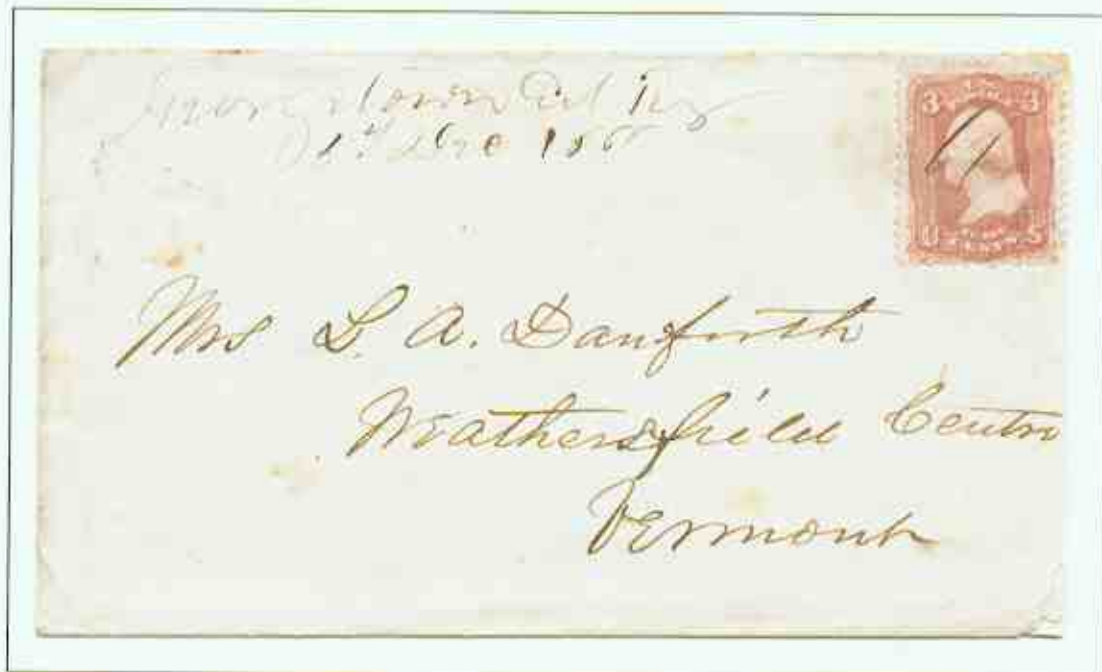 Georgetown Col Try
Dec 186
3 3
U S
Mrs L. A. Danforth
Weathersfield Centre
Vermont